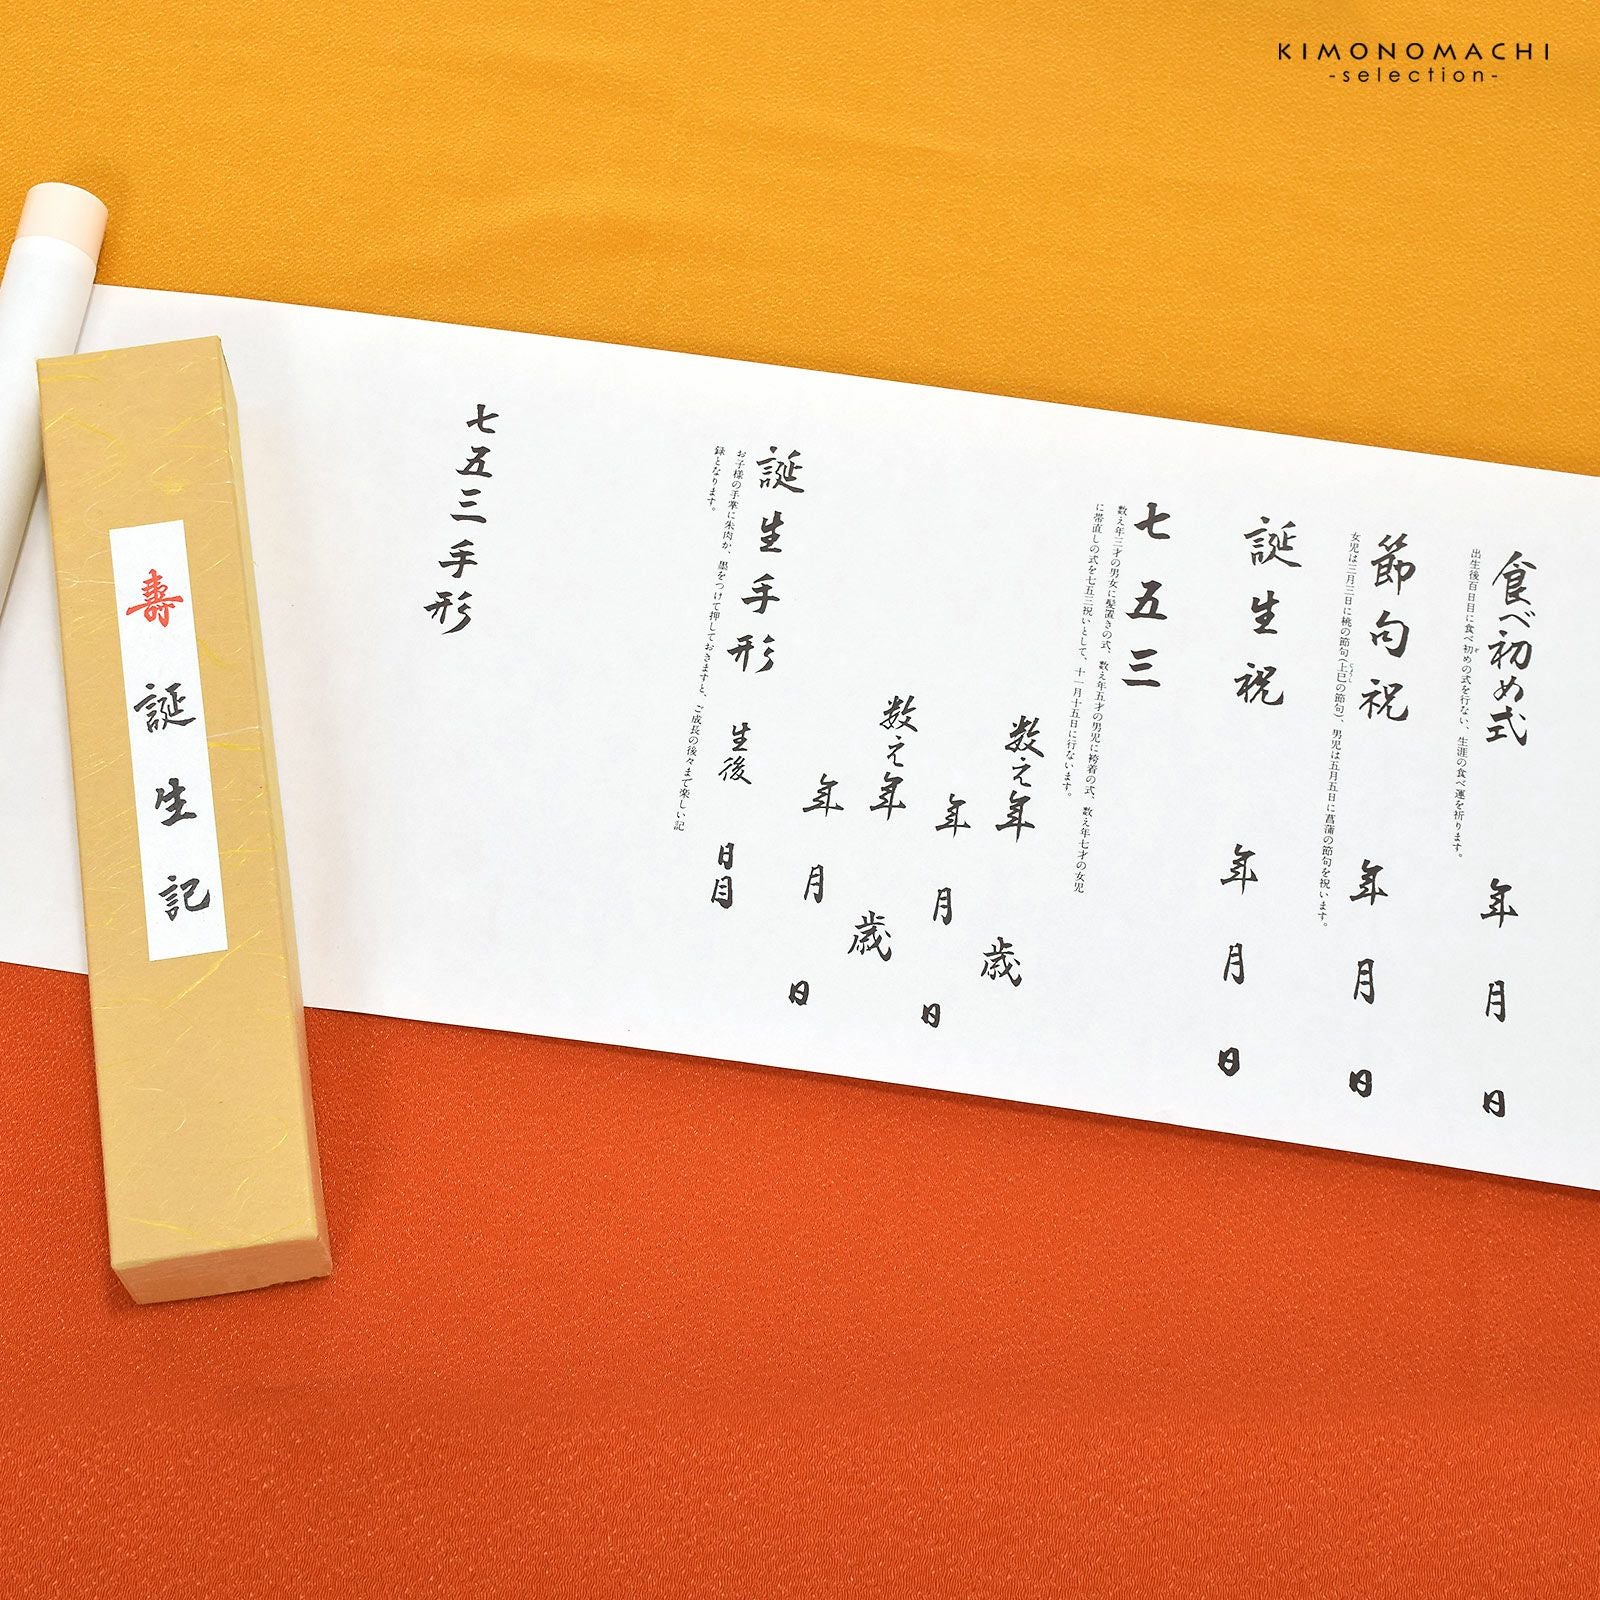 KIMONOMACHI
-selection-
食べ初め式
年 月 日
出生後百日目に食べ初めの式を行ない、生涯の食べ運を祈ります。
節句祝
年 月 日
女児は三月三日に桃の節句(上巳の節句)、男児は五月五日に菖蒲の節句を祝います。
誕生祝
年 月 日
七五三
数え年三才の男女に髪置きの式、数え年五才の男児に袴着の式、数え年七才の女児
に帯直しの式を七五三祝いとして、十一月十五日に行ないます。
数え年 歳
年 月 日
数え年 歳
年 月 日
誕生手形 生後 日目
お子様の手掌に朱肉か、墨をつけて押しておきますと、ご成長の後々まで楽しい記
録となります。
七五三手形
寿 誕生記